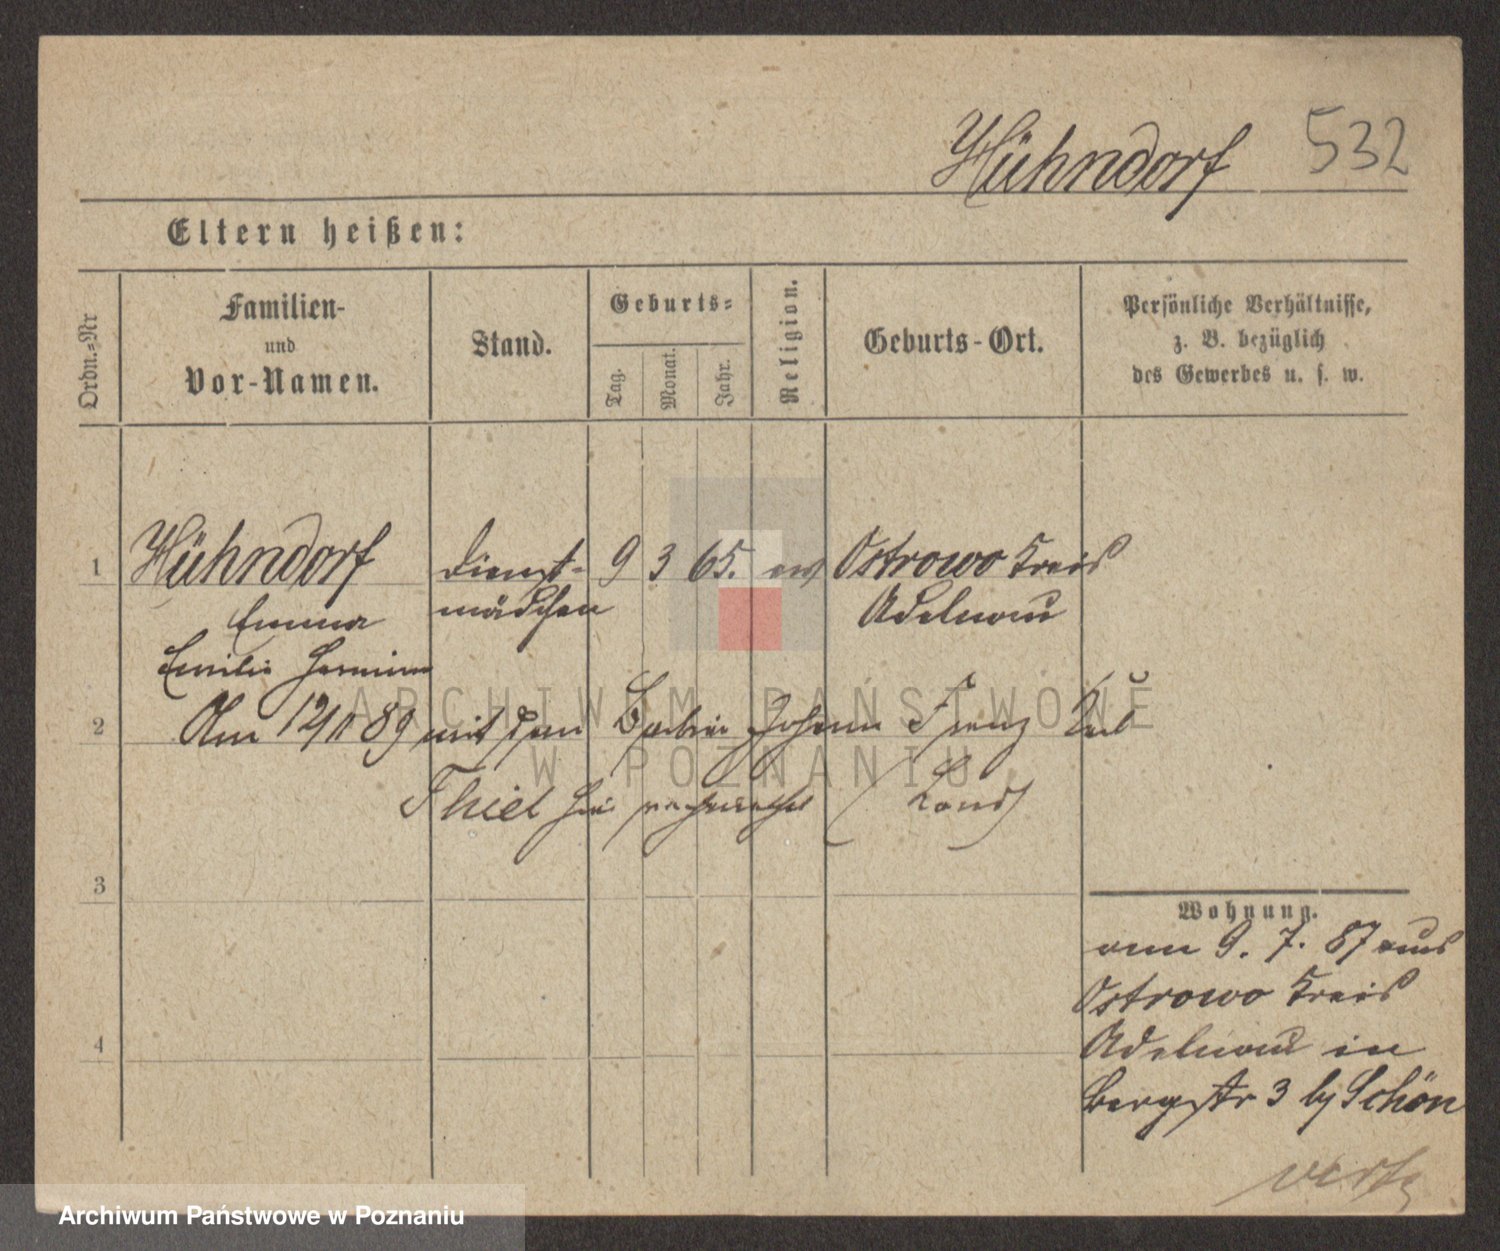 Hühndorf 532
Eltern heißen:
Ordn.=Nr
Familien-
und
Vor-Namen.
Stand.
Geburts=
Tag.
Monat.
Jahr.
Religion.
Geburts-Ort.
Persönliche Verhältnisse,
z. B. bezüglich
des Gewerbes u. s. w.
1 Hühndorf Dienst- 9 3 65. ev Ostrowo Kreis
Emma mädchen Adelnau
Emilie Hermine
2 Am 12/11 89 mit dem Johann Franz
Thiel hier
3
Wohnung.
am 9. 7. 87 aus
Ostrowo Kreis
4 Adelnau in
Bergstr 3 by Schön
ARCHIWUM PAŃSTWOWE
W POZNANIU
Archiwum Państwowe w Poznaniu